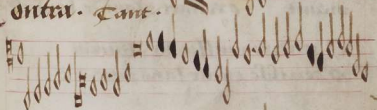 ontra. Cant.